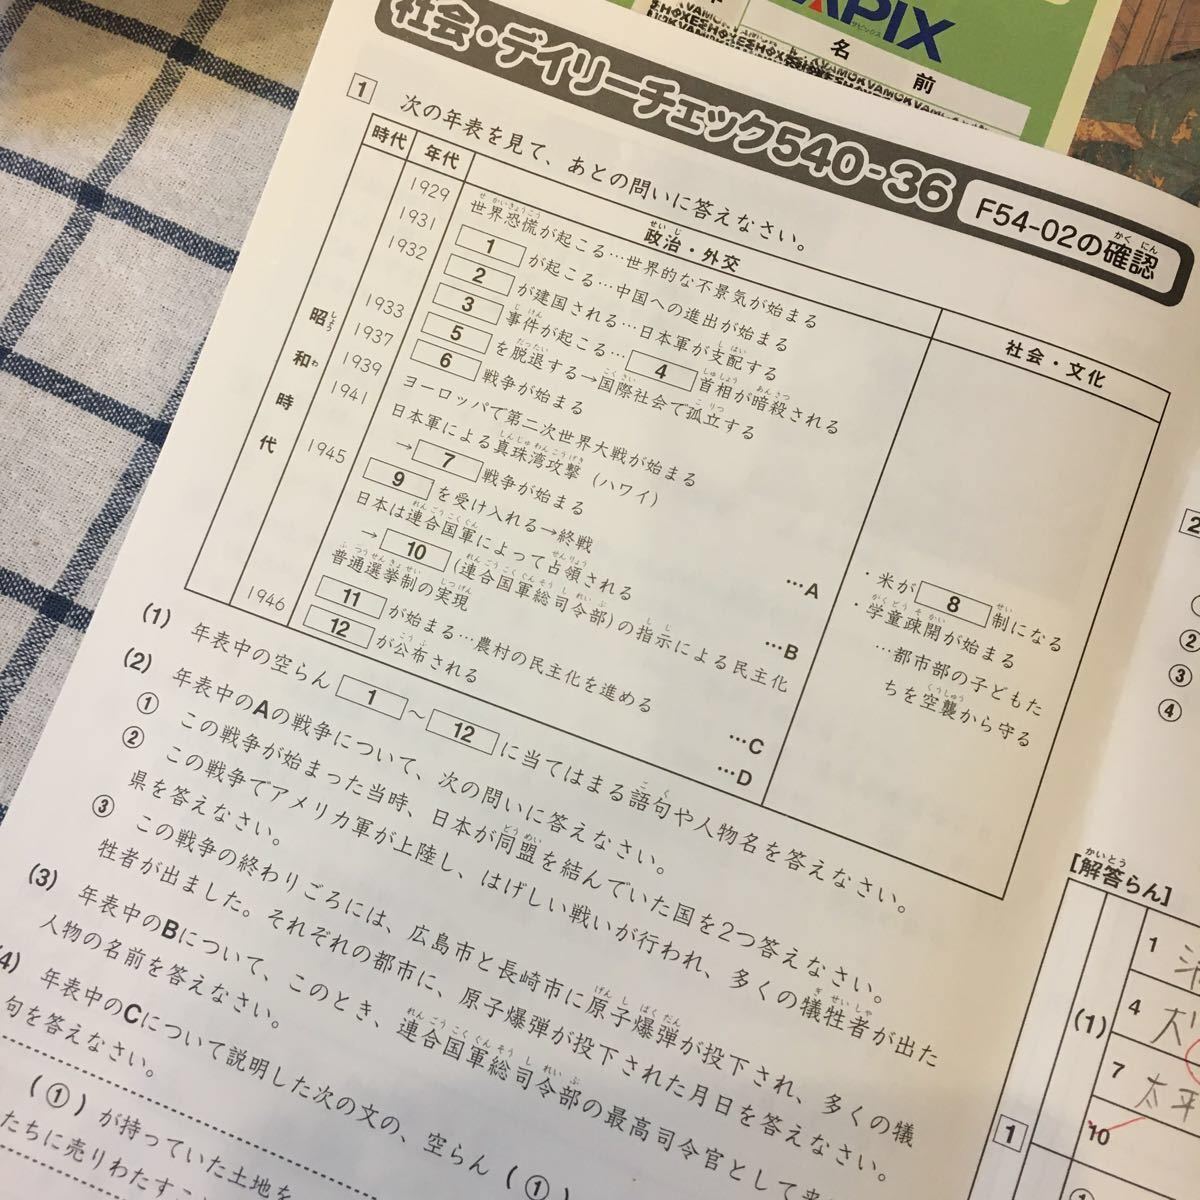 APIX
名前
社会・デイリーチェック540-36
F54-02の確認
1 次の年表を見て、あとの問いに答えなさい。
時代 年代 政治・外交 社会・文化
昭和時代
1929 世界恐慌が起こる…世界的な不景気が始まる
1931 1 が起こる…中国への進出が始まる
1932 2 が建国される…日本軍が支配する
3 事件が起こる… 4 首相が暗殺される
1933 5 を脱退する→国際社会で孤立する
1937 6 戦争が始まる
1939 ヨーロッパで第二次世界大戦が始まる
1941 日本軍による真珠湾攻撃(ハワイ)
→ 7 戦争が始まる …A
・米が 8 制になる
・学童疎開が始まる
…都市部の子どもた
ちを空襲から守る
1945 9 を受け入れる→終戦
日本は連合国軍によって占領される …B
→ 10 (連合国軍総司令部)の指示による民主化
普通選挙制の実現
11 が始まる…農村の民主化を進める …C
1946 12 が公布される …D
(1) 年表中の空らん 1 ～ 12 に当てはまる語句や人物名を答えなさい。
(2) 年表中のAの戦争について、次の問いに答えなさい。
① この戦争が始まった当時、日本が同盟を結んでいた国を2つ答えなさい。
② この戦争でアメリカ軍が上陸し、はげしい戦いが行われ、多くの犠牲者が出た
県を答えなさい。
③ この戦争の終わりごろには、広島市と長崎市に原子爆弾が投下され、多くの犠
牲者が出ました。それぞれの都市に、原子爆弾が投下された月日を答えなさい。
(3) 年表中のBについて、このとき、連合国軍総司令部の最高司令官として来
人物の名前を答えなさい。
4) 年表中のCについて説明した次の文の、空らん(①)
句を答えなさい。
(①)が持っていた土地を
たちに売りわたすこ
2
②
③
④
[解答らん]
1
(1)
1
4
7 太平
10